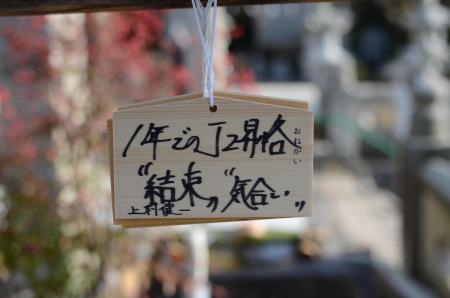 1年でのJ2昇格
おねがい
“結束”“気合い”
上村健一